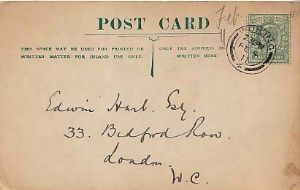 Feb
POST CARD
THIS SPACE MAY BE USED FOR PRINTED OR
WRITTEN MATTER FOR INLAND USE ONLY.
ONLY THE ADDRESS
WRITTEN HERE.
Edwin Hart. Esq.
33. Bedford Row.
London.
W.C.